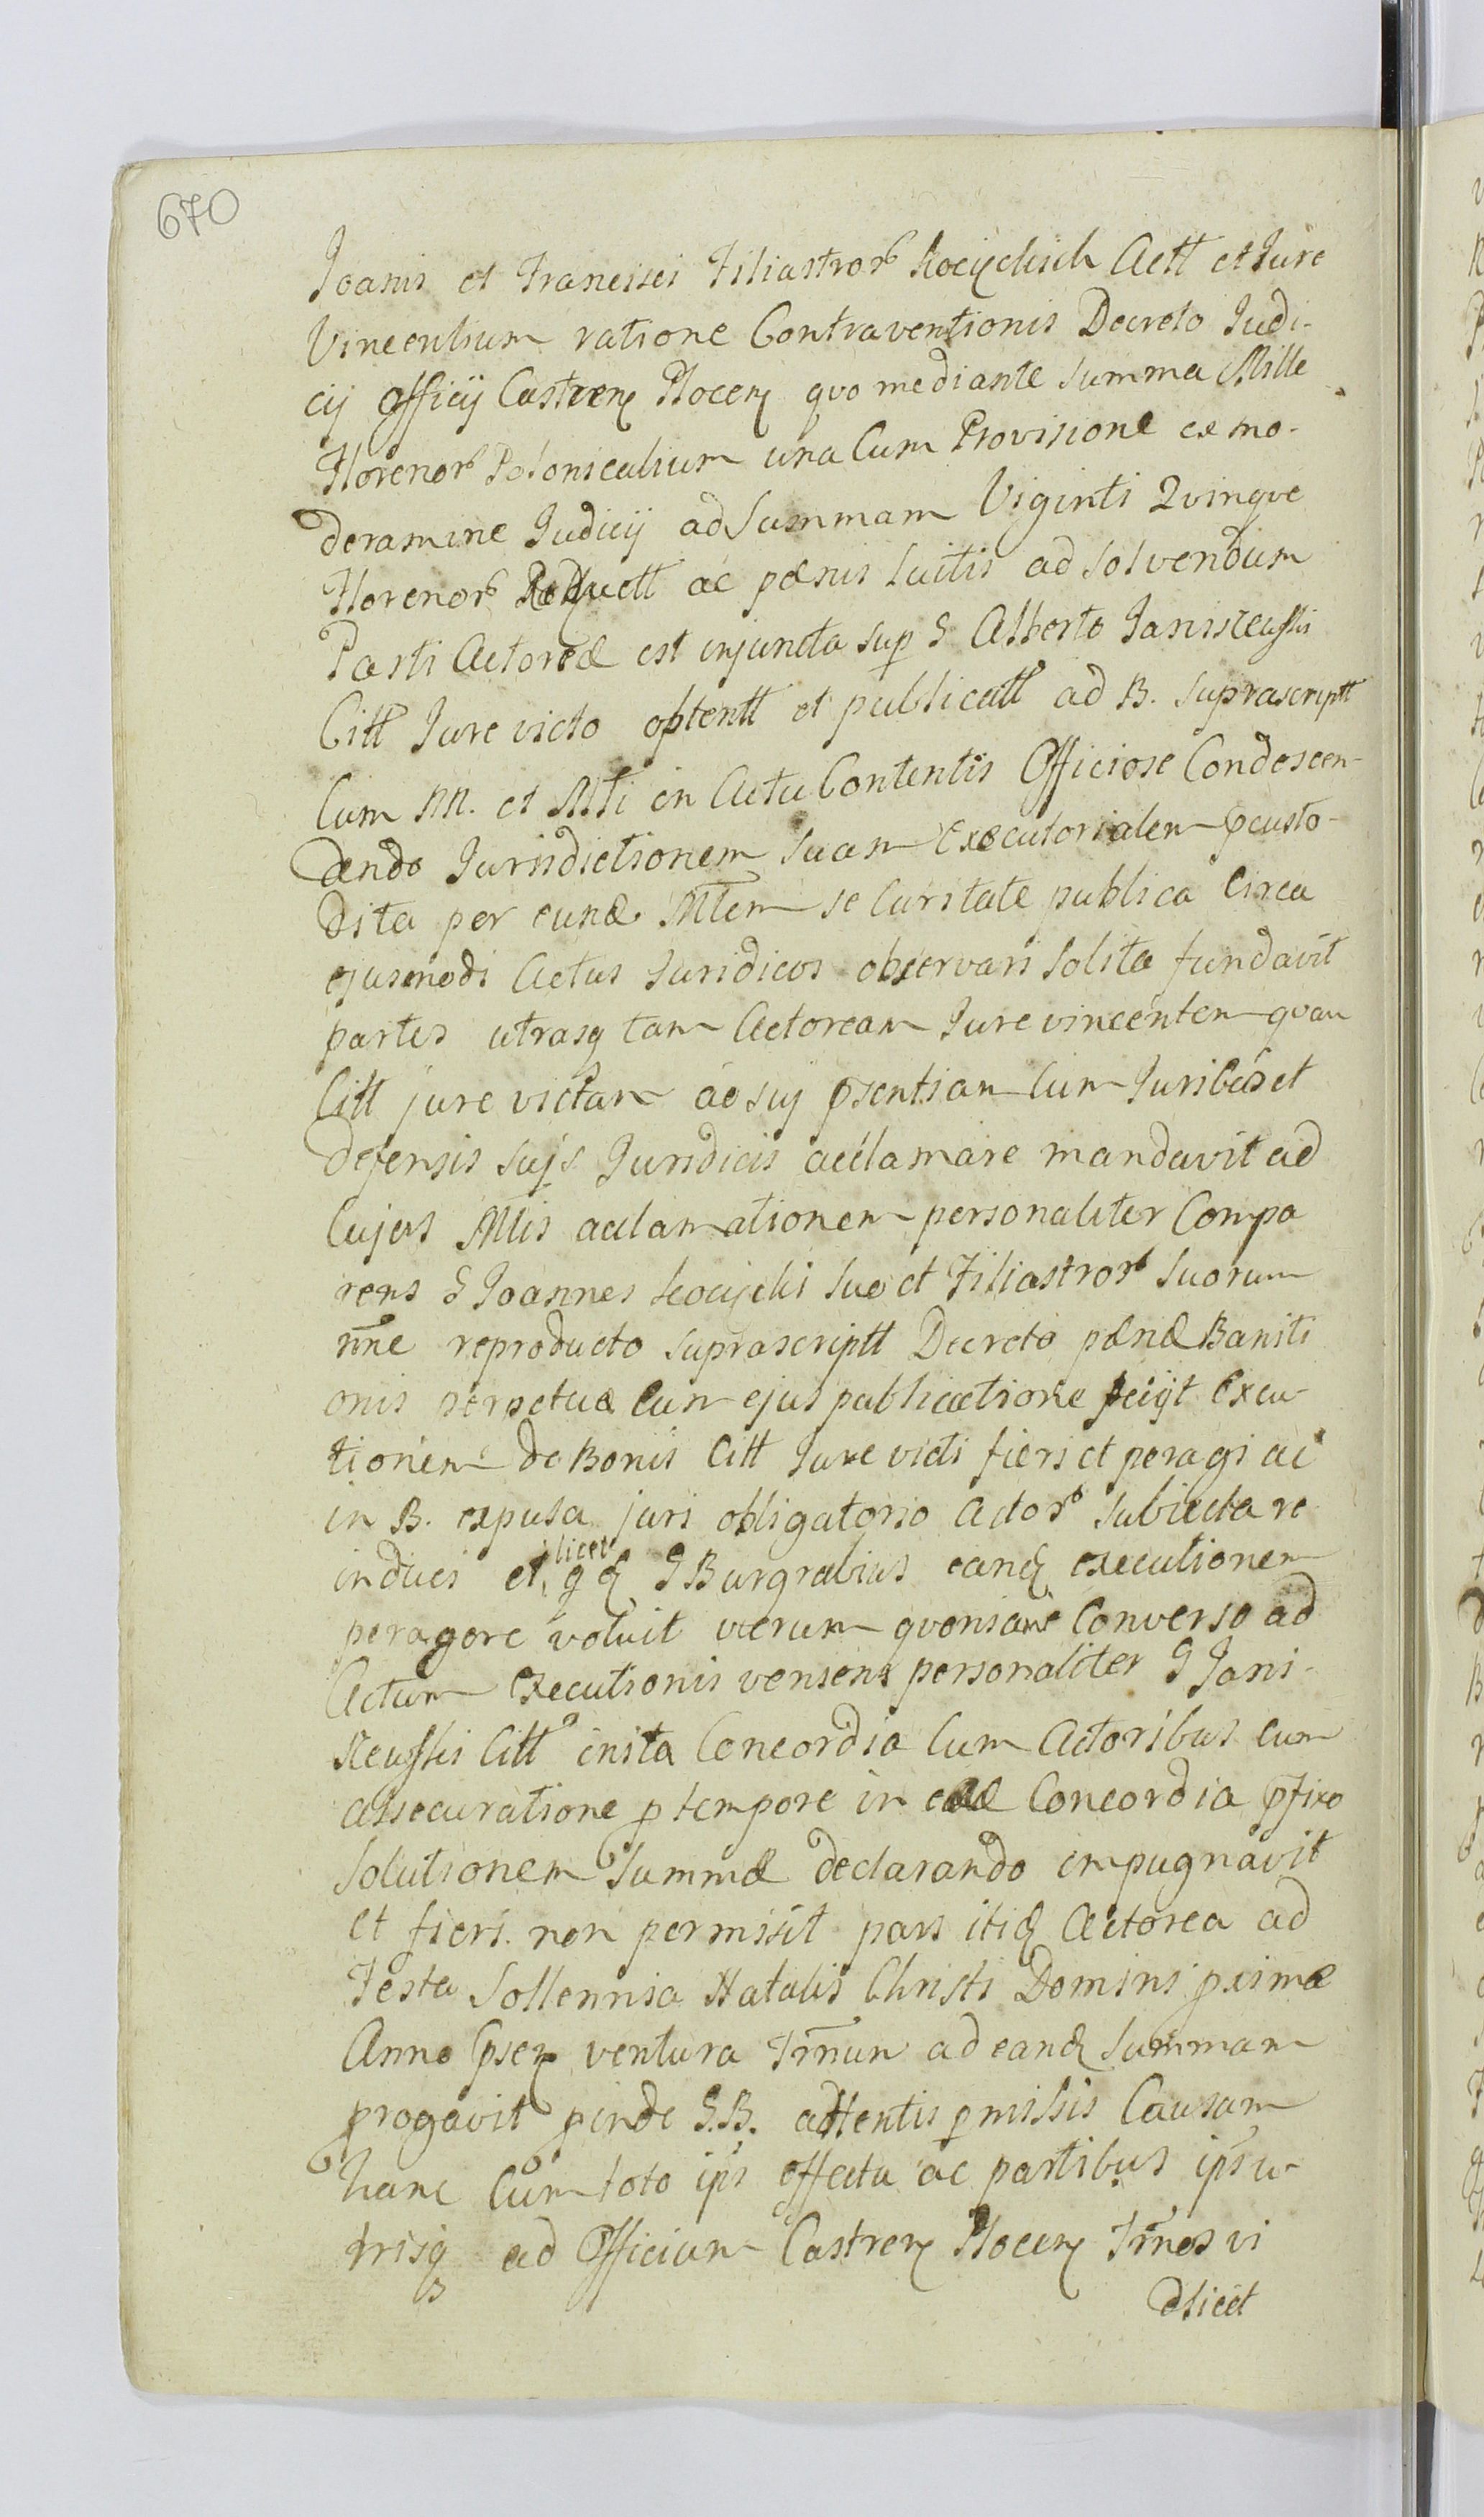 670
Joanis et Francisci Filiastror Kocyckich Actt et Jure
Vincentium ratione Contraventionis Decreto Judi-
cij Officij Castren Plocen quo mediante Summa Mille
Florenor Polonicalium una Cum Provisione ex mo-
deramine Judicij ad Summam Viginti Quinque
Florenor ac pænis luitis ad solvendum
Parti Actoreæ est injuncta sup G Alberto Janiszewski
Citt Jure victo obtentt et publicatt ad B. suprascriptt
Cum NN. et Mti in Actu Contentis Officiose Condescen-
dendo Jurisdictionem suam Executorialem pcusto-
dita per eund Mtem securitate publica Circa
ejusmodi Actus Juridicos observari solita fundavit
partes utrasq tam Actoream Jure vincentem quam
Citt jure victam ad sui pséntiam Cum Juribus et
defensis suis Juridicis acclamare mandavit ad
Cujus Mtis acclamationem personaliter Compa
rens G Joannes Kocycki suo et Filiastror suorum
nne reproducto suprascriptt Decreto pænæ Baniti
onis perpetuæ Cum ejus publicatione petijt Excu-
tionem de Bonis Citt Jure victi fieri et peragi ac
in B. expulsa juri obligatorio Actor Subiecta re
induci et, licet qd G Burgrabius eand executionem
peragere voluit verum quoniam Converso ad
Actum Executionis veniens personaliter G Jani-
szewski Citt inita Concordia Cum Actoribus cum
assecuratione p tempore in Concordia pfixo
Solutionem Summæ declarando impugnavit
et fieri non permisit pars itid Actorea ad
Festa Sollennia Natalis Christi Domini pximæ
Anno psen ventura Trnum ad eand Summam
progavit pinde G.B. attentis pmissis Causam
hanc Cum toto ips effectu ac partibus ips u-
trisq ad Officium Castren Plocen Trnos vi
dlicet